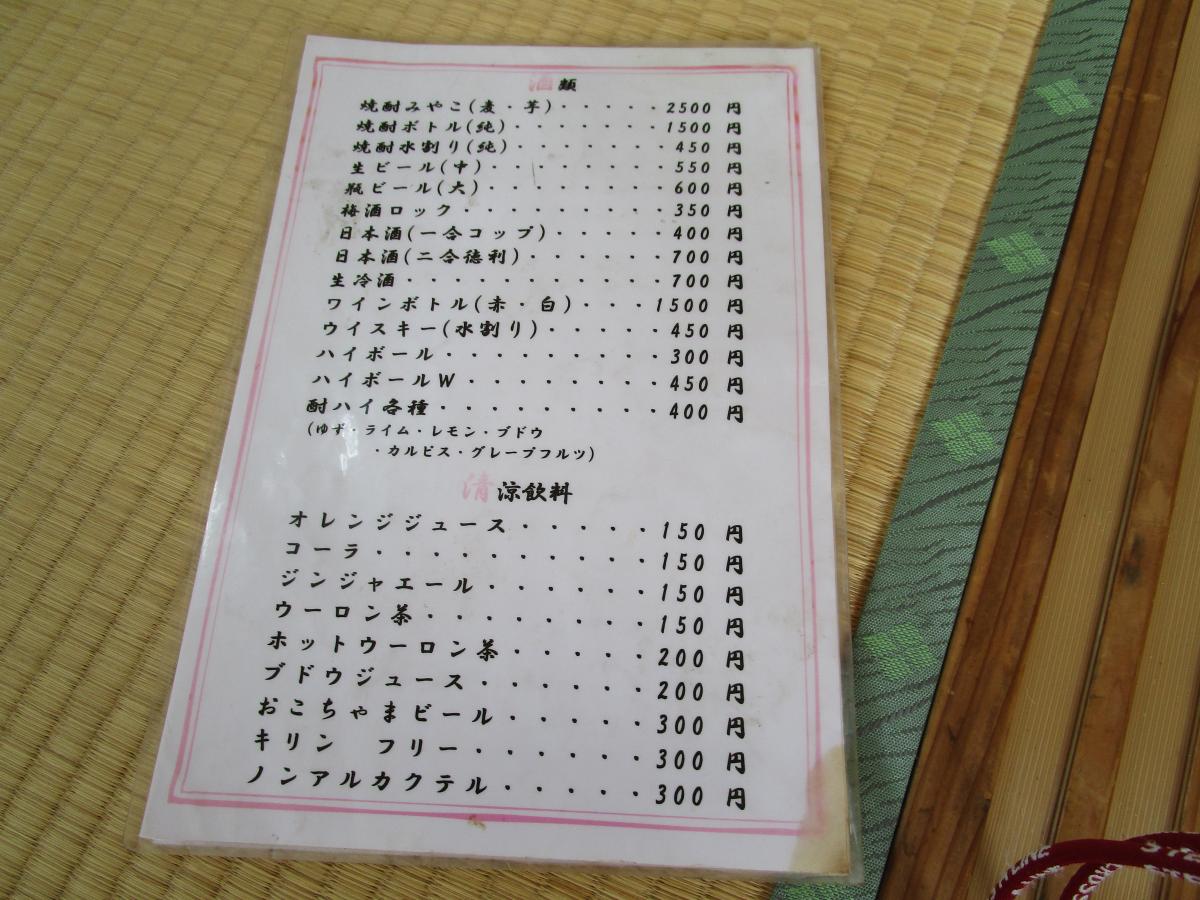 酒類
焼酎みやこ(麦・芋)・・・・・2500 円
焼酎ボトル(純)・・・・・・・1500 円
焼酎水割り(純)・・・・・・・450 円
生ビール(中)・・・・・・・・550 円
瓶ビール(大)・・・・・・・・600 円
梅酒ロック・・・・・・・・・350 円
日本酒(一合コップ)・・・・・400 円
日本酒(二合徳利)・・・・・・700 円
生冷酒・・・・・・・・・・・700 円
ワインボトル(赤・白)・・・1500 円
ウイスキー(水割り)・・・・・450 円
ハイボール・・・・・・・・・300 円
ハイボールW・・・・・・・・450 円
酎ハイ各種・・・・・・・・・400 円
(ゆず・ライム・レモン・ブドウ
・カルピス・グレープフルツ)
清涼飲料
オレンジジュース・・・・・150 円
コーラ・・・・・・・・・・150 円
ジンジャエール・・・・・・150 円
ウーロン茶・・・・・・・・150 円
ホットウーロン茶・・・・・200 円
ブドウジュース・・・・・・200 円
おこちゃまビール・・・・・300 円
キリン　フリー・・・・・・300 円
ノンアルカクテル・・・・・300 円